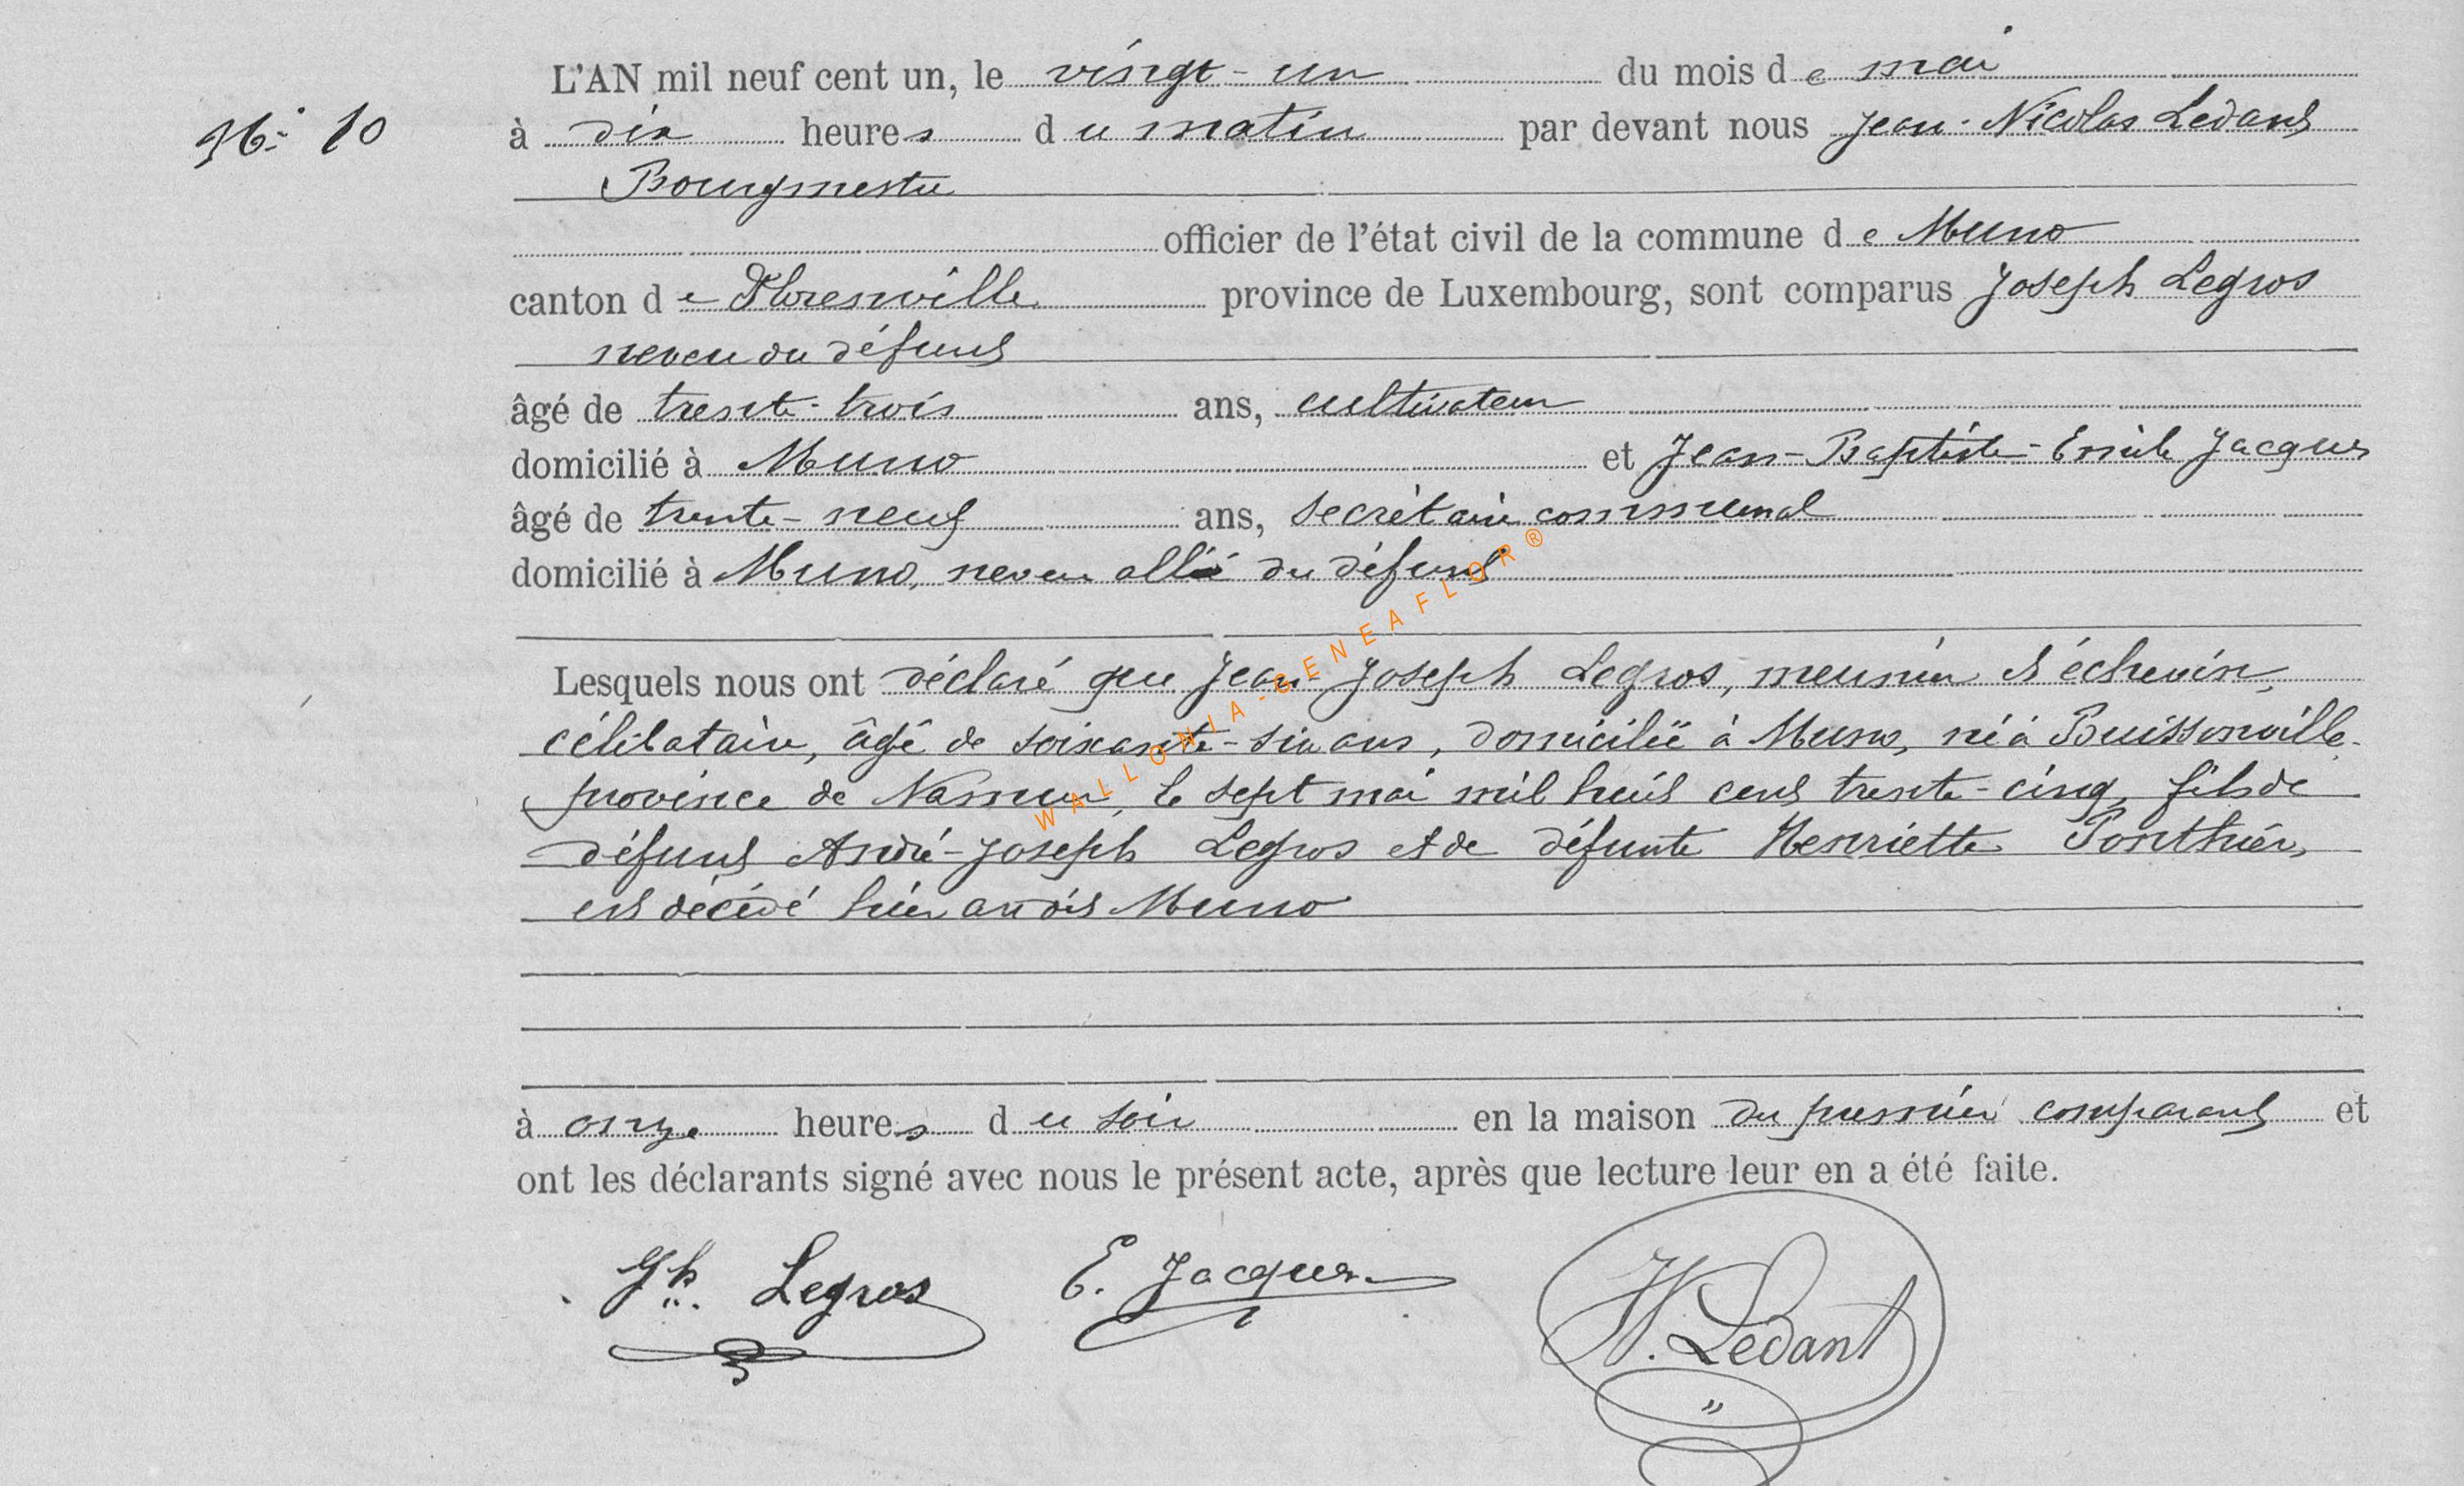 L'AN mil neuf cent un, le vingt-un du mois de mai
No 10
à dix heures du matin par devant nous Jean-Nicolas Ledant
Bourgmestre
officier de l'état civil de la commune de Muno
canton de Florenville province de Luxembourg, sont comparus Joseph Legros
neveu du défunt
âgé de trente-trois ans, cultivateur
domicilié à Muno et Jean-Baptiste-Emile Jacques
âgé de trente-neuf ans, secrétaire communal
domicilié à Muno, neveu allié du défunt
Lesquels nous ont déclaré que Jean-Joseph Legros, meunier et échevin,
célibataire, âgé de soixante-six ans, domicilié à Muno, né à Buissonville
province de Namur, le sept mai mil huit cent trente-cinq, fils de
défunt André-Joseph Legros et de défunte Henriette Ponthier,
est décédé hier au dit Muno
à onze heures du soir en la maison du premier comparant et
ont les déclarants signé avec nous le présent acte, après que lecture leur en a été faite.
Jh. Legros E. Jacques N. Ledant
WALLONIA-GENEAFLOR®